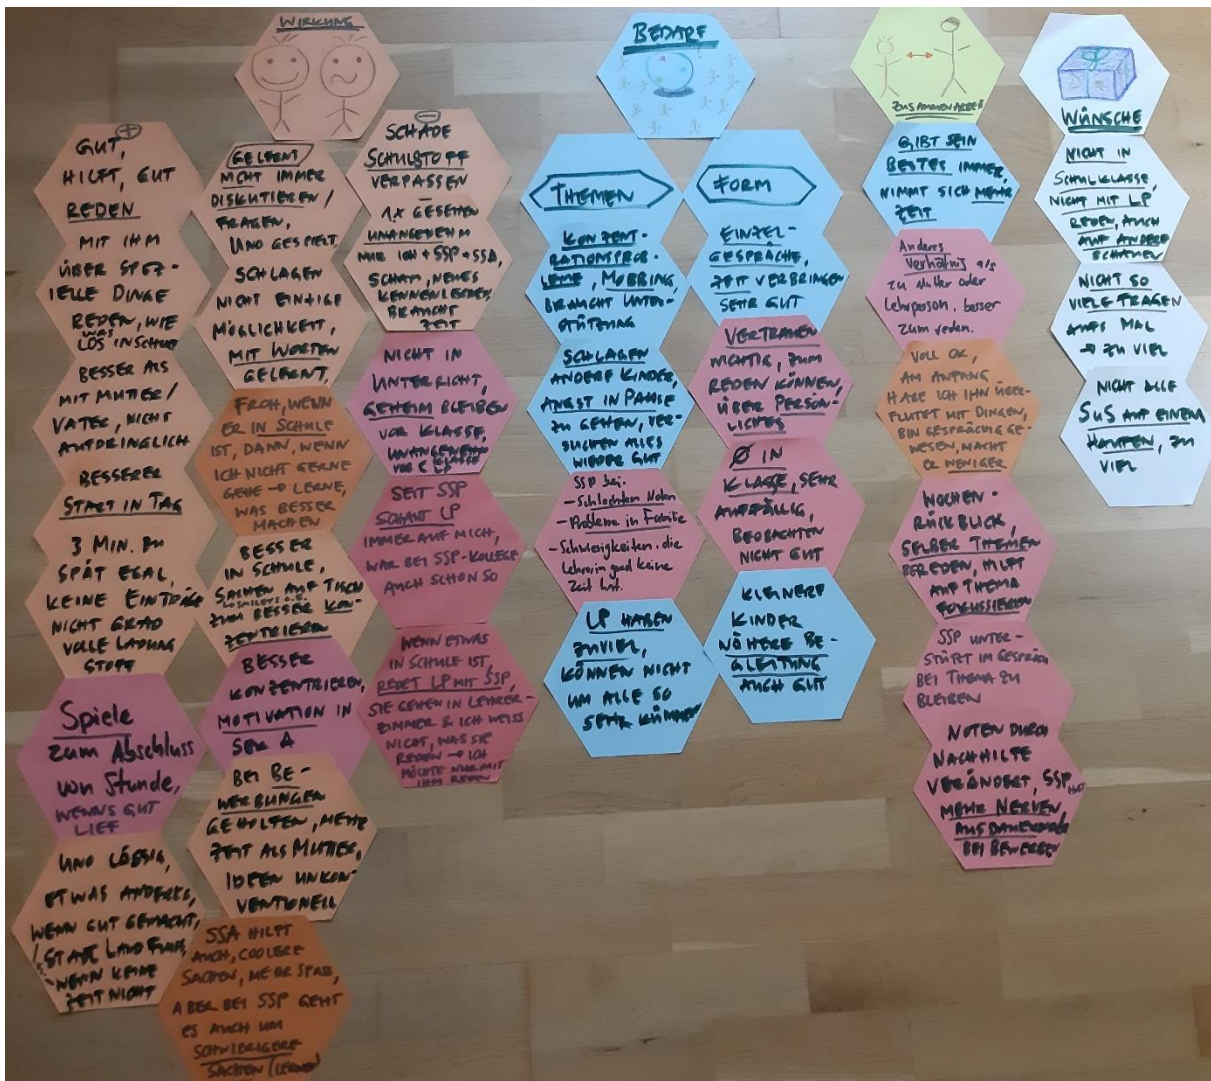 WIRKUNG
+
GUT,
HILFT, GUT
REDEN
MIT IHM
ÜBER SPEZ-
IELLE DINGE
REDEN, WIE
WAS
LOS IN SCHULE
BESSER ALS
MIT MUTTER/
VATER, NICHT
AUFDRINGLICH
BESSERER
START IN TAG
3 MIN. ZU
SPÄT EGAL,
KEINE EINTRÄGE
NICHT GRAD
VOLLE LADUNG
STOFF
Spiele
zum Abschluss
von Stunde,
WENNS GUT
LIEF
UNO LÄSSIG,
ETWAS ANDERES,
WENN GUT GEMACHT,
STADT LAND FLUSS,
WENN KEINE
ZEIT NICHT
GELERNT
NICHT IMMER
DISKUTIEREN/
FRAGEN,
UNO GESPIELT,
SCHLAGEN
NICHT EINZIGE
MÖGLICHKEIT,
MIT WORTEN
GELERNT,
FROH, WENN
ER IN SCHULE
IST, DANN, WENN
ICH NICHT GERNE
GEHE → LERNE,
WAS BESSER
MACHEN
BESSER
IN SCHULE,
SACHEN AUF TISCH
ZUM BESSER KON-
ZENTRIEREN
BESSER
KONZENTRIEREN,
MOTIVATION IN
SEK A
BEI BE-
WERBUNGEN
GEHOLFEN, MEHR
ZEIT ALS MUTTER,
IDEEN UNKON-
VENTIONELL
SSA HILFT
AUCH, COOLERE
SACHEN, MEHR SPASS,
ABER BEI SSP GEHT
ES AUCH UM
SCHWIERIGERE
SACHEN (LERNEN)
-
SCHADE
SCHULSTOFF
VERPASSEN
-
1X GESEHEN
UNANGENEHM
NUR ICH + SSP + SSA,
SCHAM, NEUES
KENNENLERNEN,
BRAUCHT
ZEIT
NICHT IN
UNTERRICHT,
GEHEIM BLEIBEN
VOR KLASSE,
UNANGENEHM
SEIT SSP
SCHAUT LP
IMMER AUF MICH,
WAR BEI SSP-KOLLEGE
AUCH SCHON SO
WENN ETWAS
IN SCHULE IST,
REDET LP MIT SSP,
SIE GEHEN IN LEHRER-
ZIMMER & ICH WEISS
NICHT, WAS SIE
REDEN → ICH
MÖCHTE NUR MIT
IHM REDEN
BEDARF
THEMEN
KONZENT-
RATIONSPROB-
LEME, MOBBING,
BRAUCHT UNTER-
STÜTZUNG
SCHLAGEN
ANDERE KINDER,
ANGST IN PAUSE
ZU GEHEN, VER-
SUCHEN ALLES
WIEDER GUT
SSP bei:
- Schlechten Noten
- Probleme in Familie
- Schwierigkeiten, die
Lehrerin grad keine
Zeit hat.
LP HABEN
ZUVIEL,
KÖNNEN NICHT
UM ALLE SO
SEHR KÜMMERN
FORM
EINZEL-
GESPRÄCHE,
ZEIT VERBRINGEN
SEHR GUT
VERTRAUEN
WICHTIG, ZUM
REDEN KÖNNEN,
ÜBER PERSÖN-
LICHES
Ø IN
KLASSE, SEHR
AUFFÄLLIG,
BEOBACHTEN
NICHT GUT
KLEINERE
KINDER
NÄHERE BE-
GLEITUNG
AUCH GUT
ZUSAMMENARBEIT
GIBT SEIN
BESTES IMMER,
NIMMT SICH MEHR
ZEIT
Anderes
Verhältnis als
zu Mutter oder
Lehrperson, besser
zum reden.
VOLL OK,
AM ANFANG
HABE ICH IHN ÜBER-
FLUTET MIT DINGEN,
BIN GESPRÄCHIG GE-
WESEN, MACHT
ER WENIGER
WOCHEN-
RÜCKBLICK,
SELBER THEMEN
BEREDEN, HILFT
AUF THEMA
FOKUSSIEREN
SSP UNTER-
STÜTZT IM GESPRÄCH
BEI THEMA ZU
BLEIBEN
NOTEN DURCH
NACHHILFE
VERÄNDERT, SSP HAT
MEHR NERVEN,
AUSDAUERND
BEI BEWERBEN
WÜNSCHE
NICHT IN
SCHULKLASSE,
NICHT MIT LP
REDEN, AUCH
AUF ANDERE
SCHAUEN
NICHT SO
VIELE FRAGEN
AUFS MAL
→ ZU VIEL
NICHT ALLE
SUS AUF EINEM
HAUFEN, ZU
VIEL